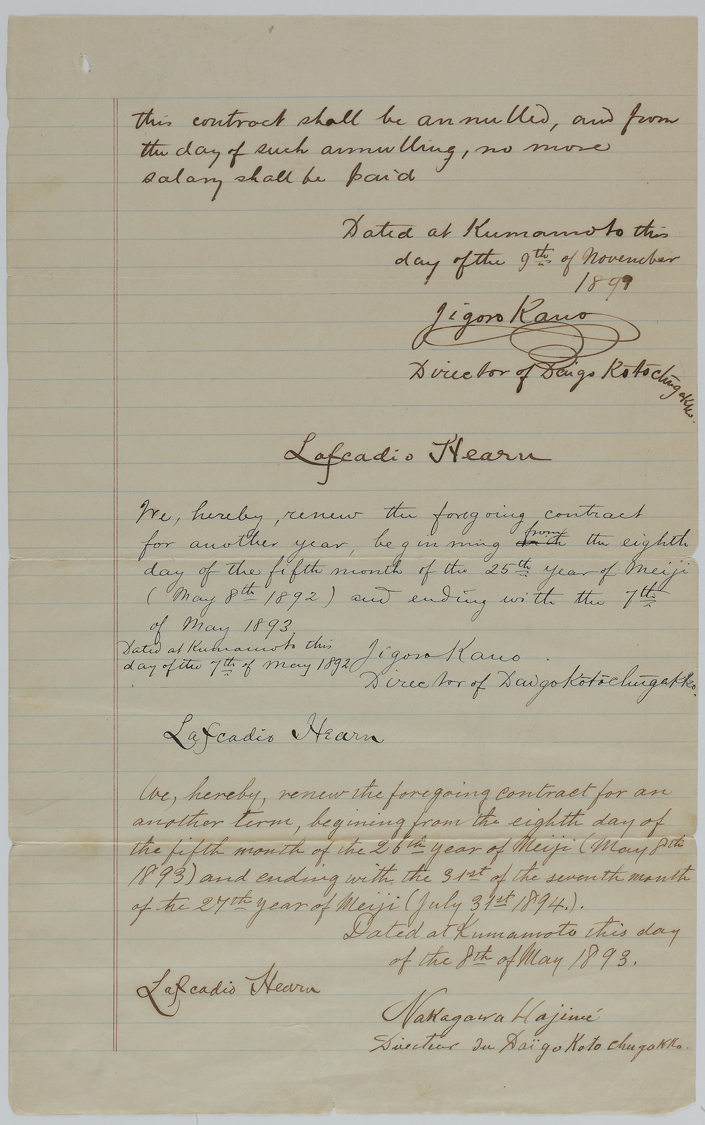 this contract shall be annulled, and from
the day of such annulling, no more
salary shall be paid
Dated at Kumamoto this
day of the 9th of November
1891
Jigoro Kano
Director of Daigo Kotochugakko.
Lafcadio Hearn
We, hereby, renew the foregoing contract
for another year, beginning from the eighth
day of the fifth month of the 25th year of Meiji
(May 8th 1892) and ending with the 7th
of May 1893
Dated at Kumamoto this
day of the 7th of May 1892
Jigoro Kano.
Director of Daigo Kotochugakko.
Lafcadio Hearn
We, hereby, renew the foregoing contract for an
another term, begining from the eighth day of
the fifth month of the 26th year of Meiji (May 8th
1893) and ending with the 31st of the seventh month
of the 27th year of Meiji (July 31st 1894.).
Dated at Kumamoto this day
of the 8th of May 1893.
Lafcadio Hearn
Nakagawa Hajimé
Directeur du Daïgo Koto chugakko.